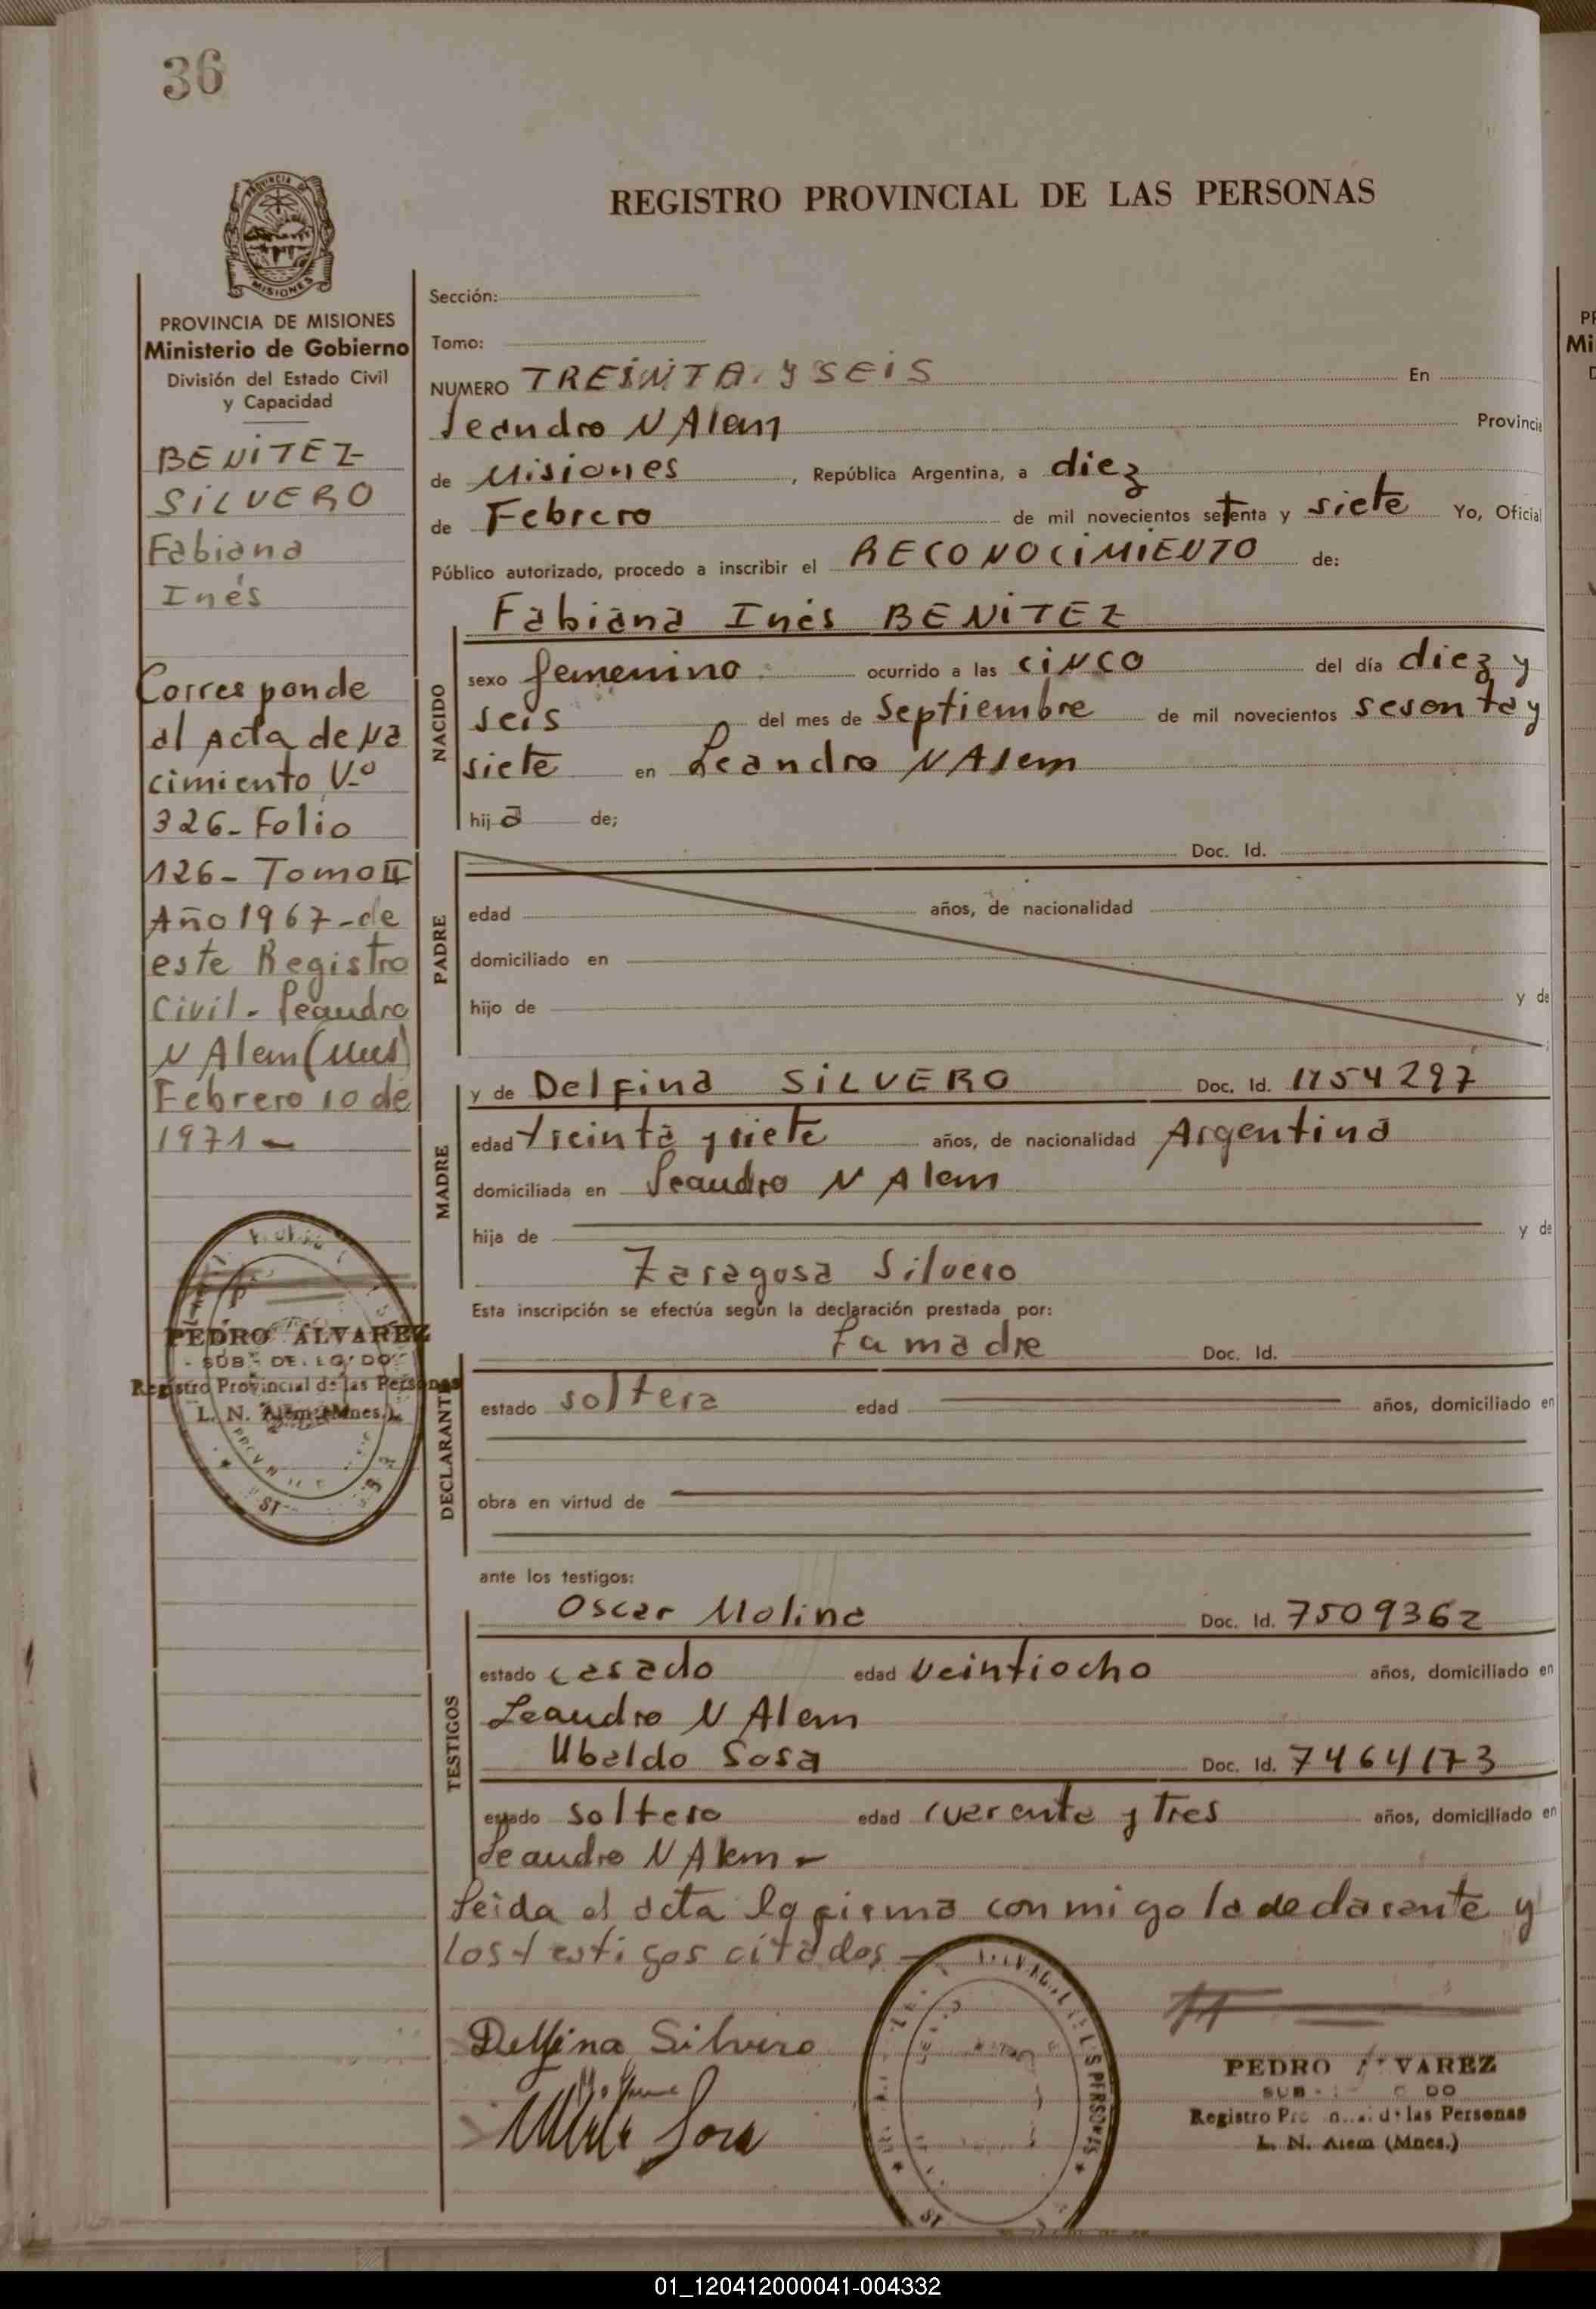 36
PROVINCIA DE MISIONES
Ministerio de Gobierno
División del Estado Civil
y Capacidad
BENITEZ
SILVERO
Fabiana
Inés
Corresponde
al Acta de Na
cimiento Nº
326- Folio
126- Tomo II
Año 1967-de
este Registro
Civil- Leandro
N Alem (Mnes)
Febrero 10 de
1971-
PEDRO ALVAREZ
Registro Provincial de las Personas
L. N. Alem (Mnes.)
REGISTRO PROVINCIAL DE LAS PERSONAS
Sección:
Tomo:
NUMERO TREINTA Y SEIS En
Leandro N Alem Provincia
de Misiones, República Argentina, a diez
de Febrero de mil novecientos setenta y siete Yo, Oficial
Público autorizado, procedo a inscribir el RECONOCIMIENTO de:
Fabiana Inés BENITEZ
NACIDO
sexo femenino ocurrido a las cinco del día diez y
seis del mes de Septiembre de mil novecientos sesenta y
siete en Leandro N Alem
hija de;
PADRE
Doc. Id.
edad años, de nacionalidad
domiciliado en
hijo de y de
MADRE
y de Delfina SILVERO Doc. Id. 1154297
edad treinta y siete años, de nacionalidad Argentina
domiciliada en Leandro N Alem
hija de y de
Zaragosa Silvero
Esta inscripción se efectúa según la declaración prestada por:
DECLARANTE
La madre Doc. Id.
estado soltera edad años, domiciliado en
obra en virtud de
ante los testigos:
TESTIGOS
Oscar Molina Doc. Id. 7509362
estado casado edad veintiocho años, domiciliado en
Leandro N Alem
Ubaldo Sosa Doc. Id. 7464173
estado soltero edad cuarenta y tres años, domiciliado en
Leandro N Alem-
Leida el acta la firma conmigo la declarante y
los testigos citados-
Delfina Silvero
Sosa
PERSONAS
PEDRO ALVAREZ
Registro Provincial de las Personas
L. N. Alem (Mnes.)
01_120412000041-004332